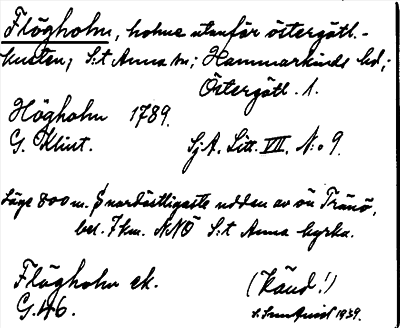 Flögholm, holme utanför östergötl.-
kusten; S:t Anna sn; Hammarkinds hd;
Östergötl. l.
Högholm 1789.
G. Klint. SjA. Litt. VII. N:o 9.
Läge 800 m. S nordöstligaste udden av ön Tränö,
bel. 7 km. NNÖ S:t Anna kyrka.
Flögholm ek. (Känd!)
G.46. 1939.